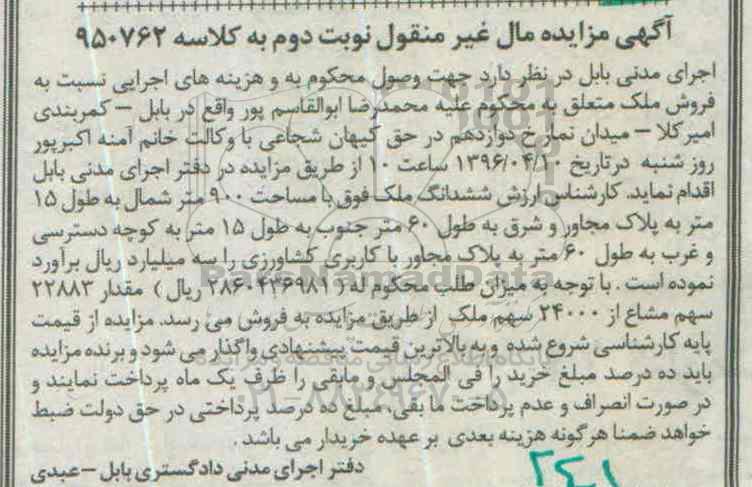 آگهی مزایده مال غیر منقول نوبت دوم به کلاسه ۹۵۰۷۶۲
اجرای مدنی بابل در نظر دارد جهت وصول محکوم به و هزینه های اجرایی نسبت به
فروش ملک متعلق به محکوم علیه محمدرضا ابوالقاسم پور واقع در بابل – کمربندی
امیرکلا – میدان نماز خ دوازدهم در حق کیهان شجاعی با وکالت خانم آمنه اکبرپور
روز شنبه درتاریخ ۱۳۹۶/۰۴/۱۰ ساعت ۱۰ از طریق مزایده در دفتر اجرای مدنی بابل
اقدام نماید. کارشناس ارزش ششدانگ ملک فوق با مساحت ۹۰۰ متر شمال به طول ۱۵
متر به پلاک مجاور و شرق به طول ۶۰ متر جنوب به طول ۱۵ متر به کوچه دسترسی
و غرب به طول ۶۰ متر به پلاک مجاور با کاربری کشاورزی را سه میلیارد ریال برآورد
نموده است . با توجه به میزان طلب محکوم له ( ۲۸۶۰۴۳۶۹۸۱ ریال ) مقدار ۲۲۸۸۳
سهم مشاع از ۲۴۰۰۰ سهم ملک از طریق مزایده به فروش می رسد. مزایده از قیمت
پایه کارشناسی شروع شده و به بالاترین قیمت پیشنهادی واگذار می شود و برنده مزایده
باید ده درصد مبلغ خرید را فی المجلس و مابقی را ظرف یک ماه پرداخت نمایند و
در صورت انصراف و عدم پرداخت ما بقی، مبلغ ده درصد پرداختی در حق دولت ضبط
خواهد ضمنا هرگونه هزینه بعدی بر عهده خریدار می باشد .
دفتر اجرای مدنی دادگستری بابل – عبدی
۲۴۱
ParsNamadData